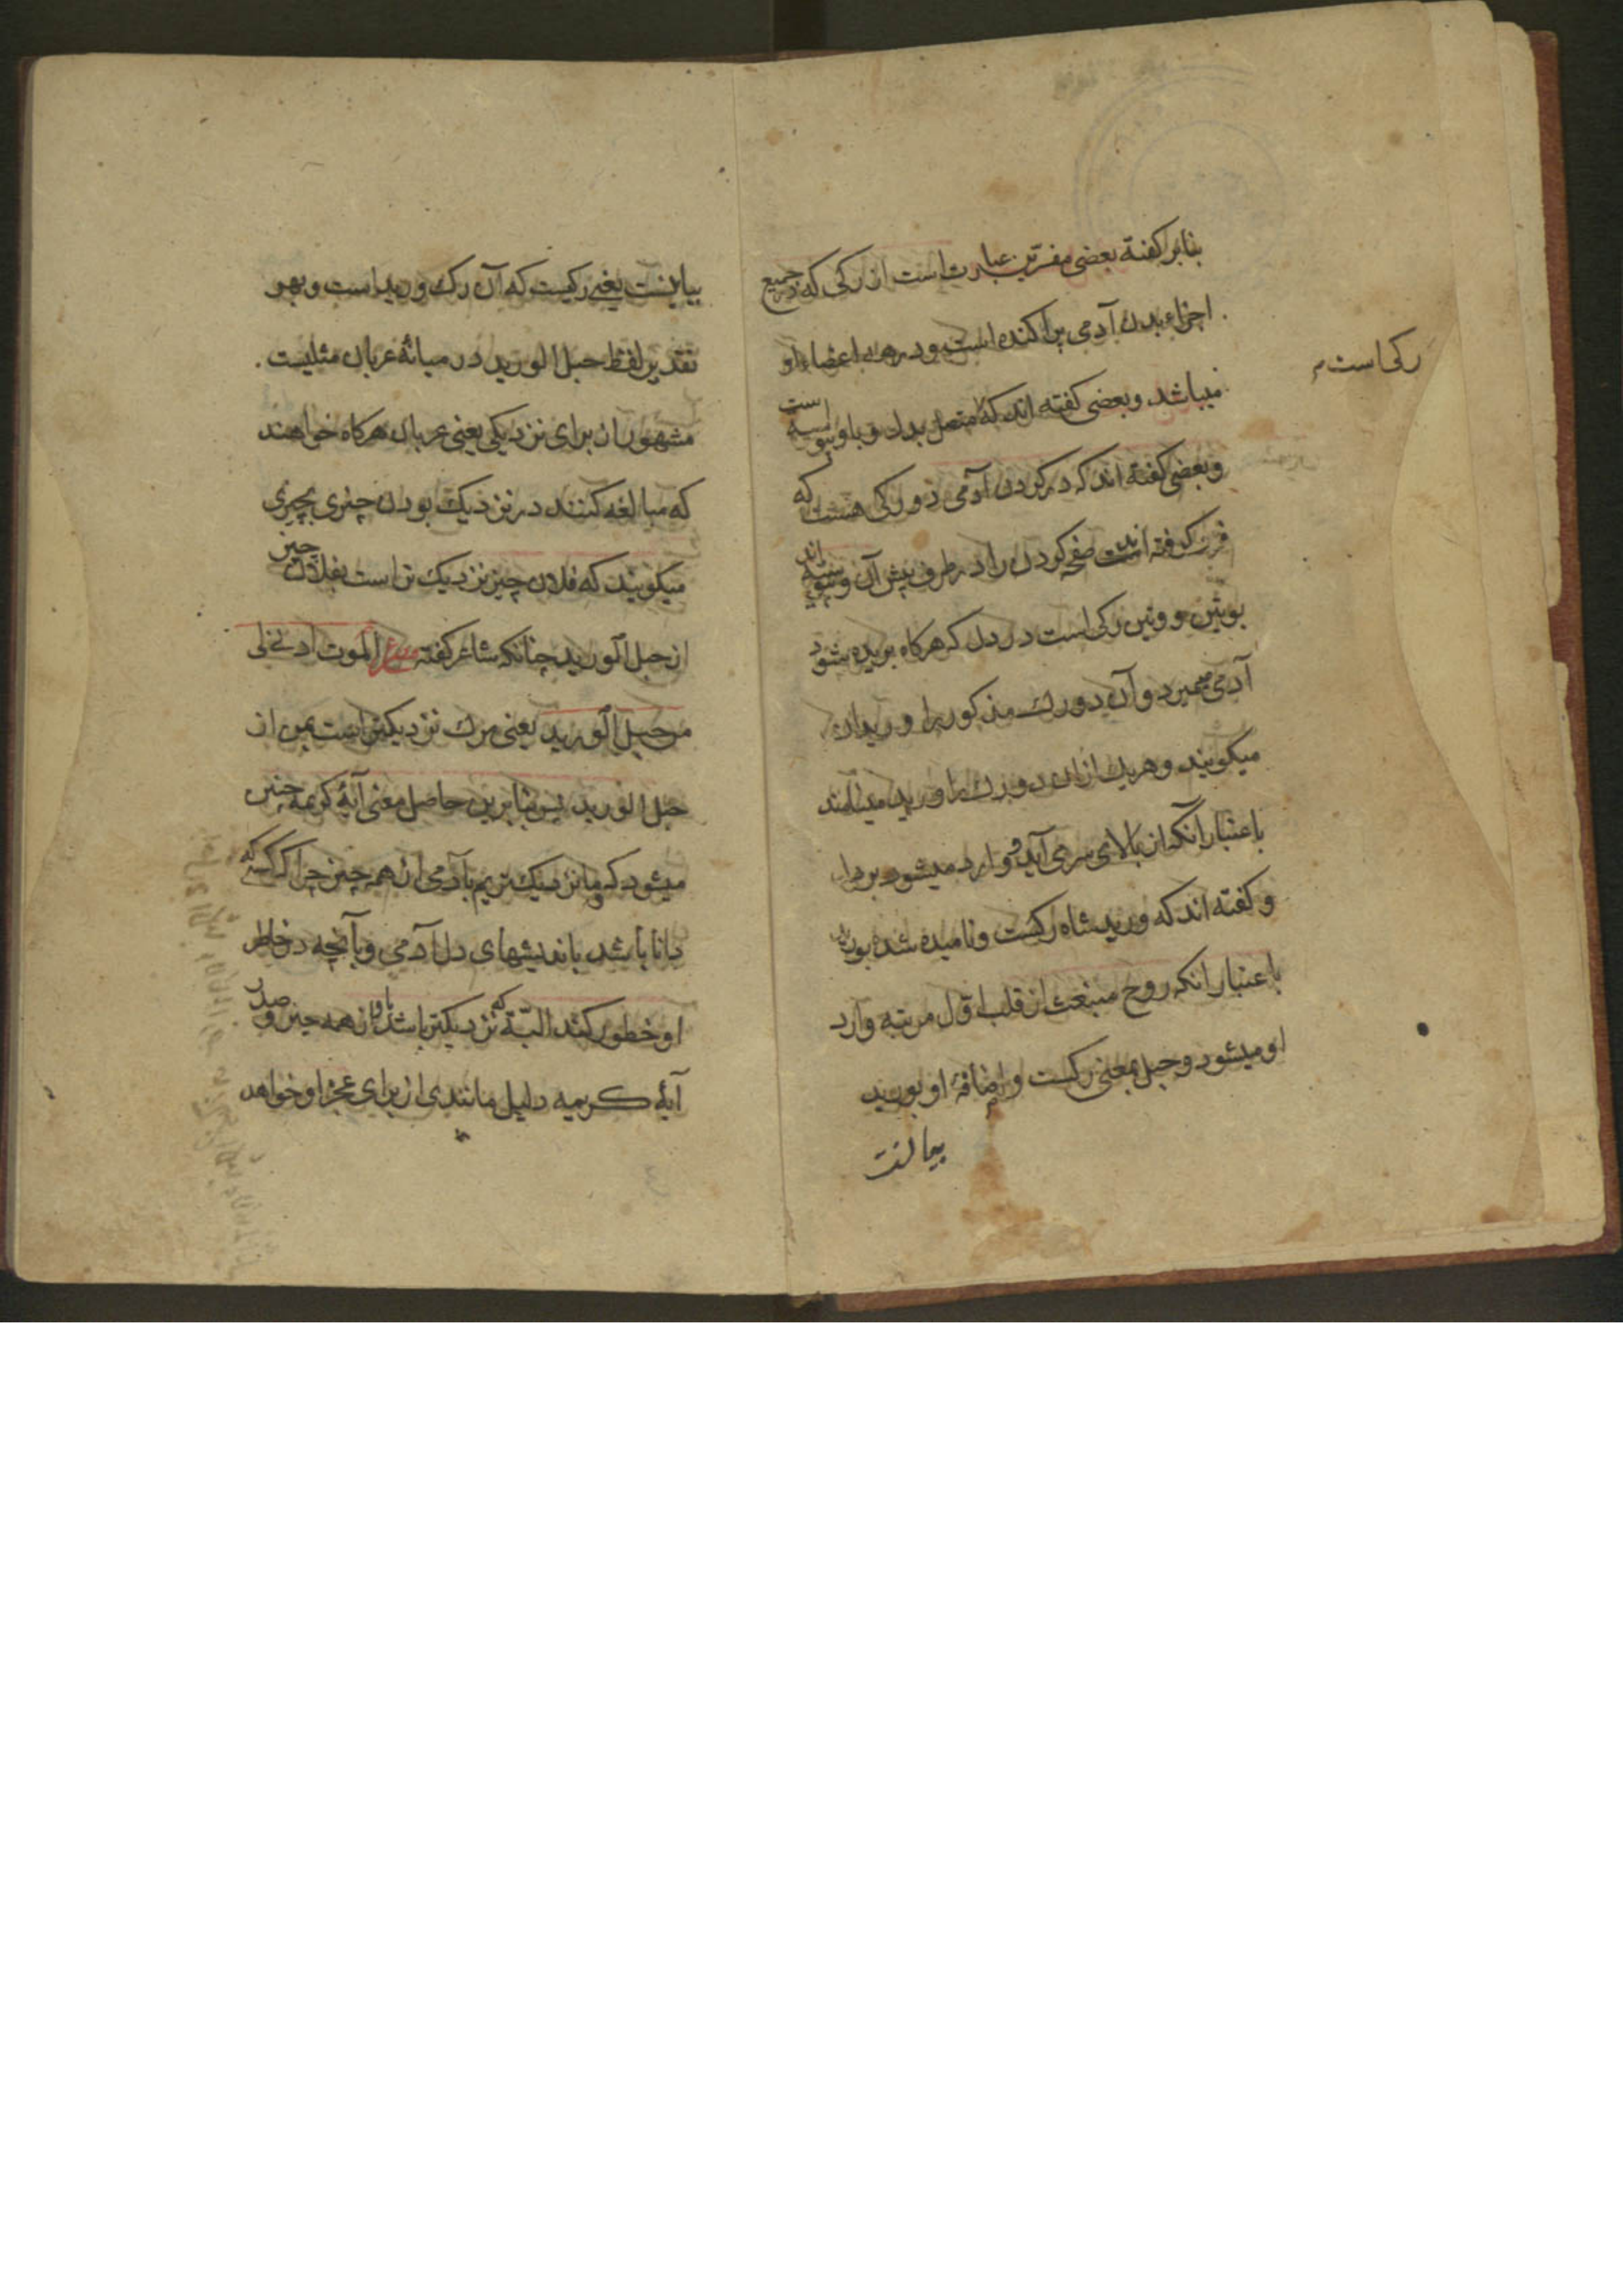 بنابر کفتهٔ بعضی مفسرین عبارت است از رکی که در جمیع
اجزاء بدن آدمی پراکنده است و در همه اعضاء او
رکی است م
میباشد و بعضی کفته اند که متصل بدل و باو پیوسته است
و بعضی کفته اند که در کردن آدمی دو رکی هست که
فرو کرفته اند صفحه کردن را در طرف پیش آن و پیوسته اند
بوتین و وتین رکی است در دل که هرکاه بریده شود
آدمی میمیرد و آن دو رک مذکور را وریدان
میکویند و هریک از ان دو رک را ورید مینامند
باعتبار آنکه از بالای سر می آید و وارد میشود بر دل
و کفته اند که ورید شاه رکست و نامیده شده بورید
باعتبار انکه روح منبعث از قلب اول مرتبه وارد
او میشود و حبل بمعنی رکست و اضافهٔ او بورید
بیانست
بیانیست یعنی رکیست که آن رک ورید است و بهر
تقدیر لفظ حبل الورید در میانهٔ عربان مثلیست
مشهور از برای نزدیکی یعنی عربان هرکاه خواهند
که مبالغه کنند در نزدیک بودن چیزی بچیزی
میکویند که فلان چیز نزدیک تر است بفلان چیز
از حبل الورید چنانکه شاعر کفته شعر الموت ادنی لی
من حبل الورید یعنی مرک نزدیکتر است بمن از
حبل الورید پس بنابرین حاصل معنی آیهٔ کریمه چنین
میشود که ما نزدیک تریم بآدمی از همه چیز چرا که کسی که
دانا باشد باندیشهای دل آدمی و بآنچه در خاطر
او خطور کند البتّه که نزدیکتر باشد باو از همه چیز و صدر
آیهٔ کریمه دلیل مانندی از برای عجز او خواهد